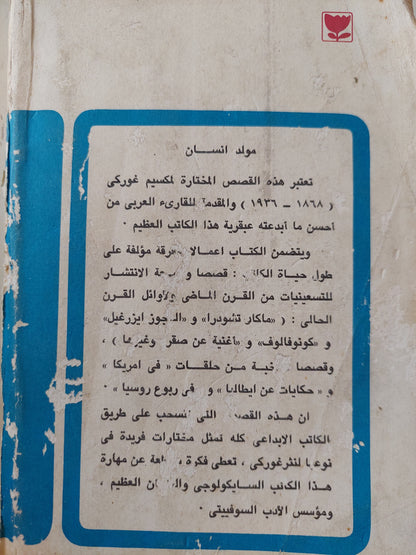 مولد انســـان
تعتبر هذه القصص المختارة لمكسيم غوركى
( ١٨٦٨ ــ ١٩٣٦ ) والمقدمة للقارىء العربى من
أحسن ما أبدعته عبقرية هذا الكاتب العظيم ٠
ويتضمن الكتاب اعمالا مؤلفة على
طول حياة : قصصا الانتشار
للتسعينيات من القرن الماضى ولأوائل القرن
الحالى : ( «ماكار تشودرا» و ايزرغيل»
و «كونوفالوف» و «أغنية عن صقر» ) ،
وقصصا من حلقات « فى امريكا »
و « حكايات عن ايطاليا » و فى ربوع روسيا » ٠
ان هذه القصص التى تنسحب على طريق
الكاتب الابداعى كله تمثل مختارات فريدة فى
نوعها لنثر غوركى ، تعطى فكرة عن مهارة
هذا الكاتب السايكولوجى العظيم ،
ومؤسس الأدب السوفييتى ٠